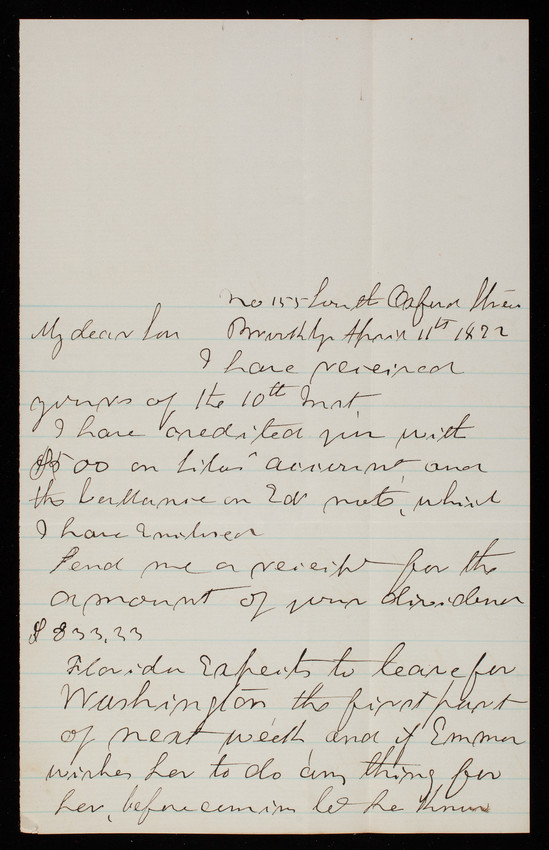 No 155 South Oxford Stree
My dear Son Brooklyn April 11th 1877
I have received
yours of the 10th Inst
I have credited you with
$500 on Silas' account and
the ballance on Eds note, which
I have Enclosed
Send me a receipt for the
amount of your dividend
$833.33
Florida Expects to leave for
Washington the first part
of next week and if Emma
wishes her to do any thing for
her, before coming let he know